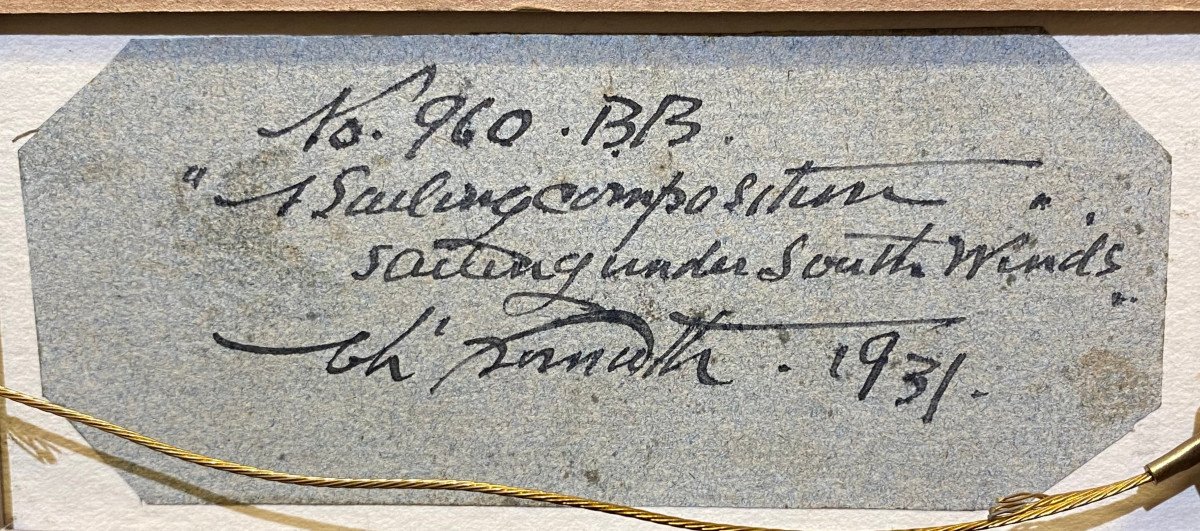 No. 960. BB.
"A Sailing composition"
sailing under South Winds"
Ch' 1931.